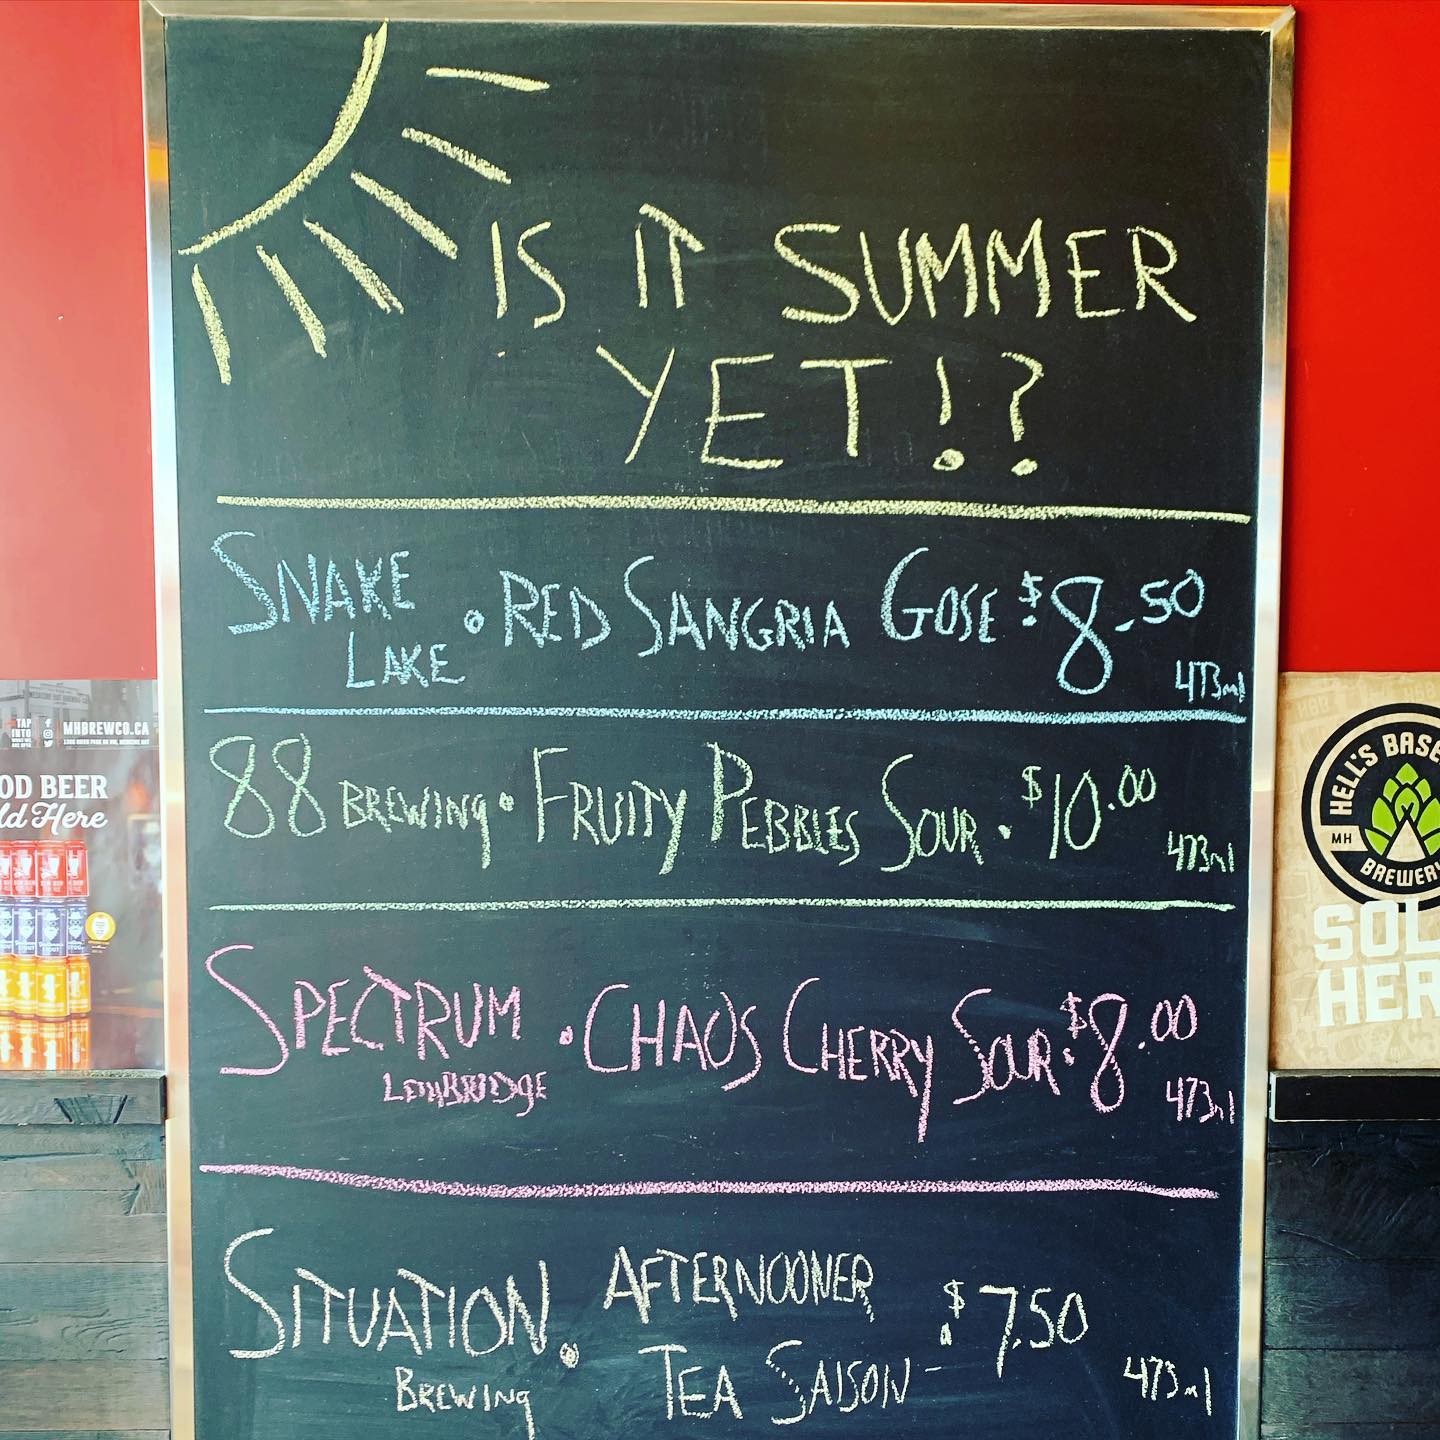 IS IT SUMMER
YET!?
SNAKE LAKE • RED SANGRIA GOSE $8.50
473ml
88 BREWING • FRUITY PEBBLES SOUR • $10.00
473ml
SPECTRUM • CHAOS CHERRY SOUR • $8.00
473ml
SITUATION BREWING • AFTERNOONER
TEA SAISON - $7.50
473ml
TAP
INTO
MHBREWCO.CA
OD BEER
ld Here
HELL'S BASE
MH
BREWERY
SOL
HER